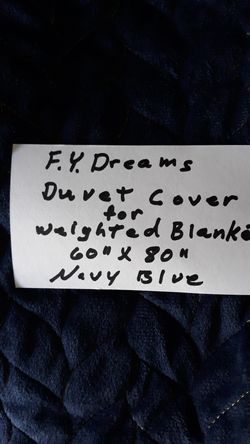 F.Y. Dreams
Duvet Cover
for
Weighted Blanke
60" X 80"
Navy Blue